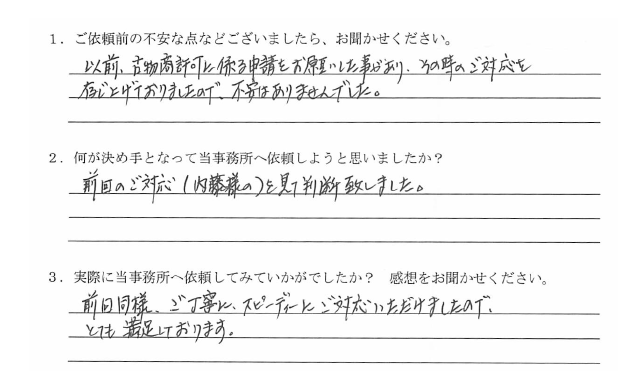 1．ご依頼前の不安な点などございましたら、お聞かせください。
以前、古物商許可に係る申請をお願いした事があり、その時のご対応を
存じ上げておりましたので、不安はありませんでした。
2．何が決め手となって当事務所へ依頼しようと思いましたか？
前回のご対応（内藤様の）を見て判断致しました。
3．実際に当事務所へ依頼してみていかがでしたか？　感想をお聞かせください。
前回同様、ご丁寧に、スピーディーにご対応いただけましたので、
とても満足しております。